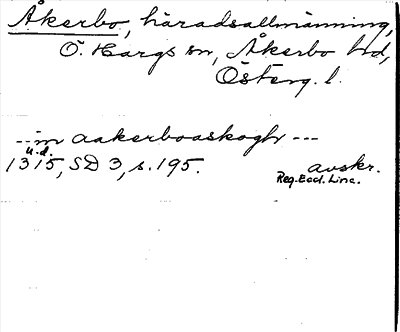 Åkerbo, häradsallmänning,
Ö. Hargs sn, Åkerbo hd,
Österg. l.
--- in aakerboaskoghr ---
u.d.
1315, SD 3, s. 195. avskr.
Reg. Eccl. Linc.